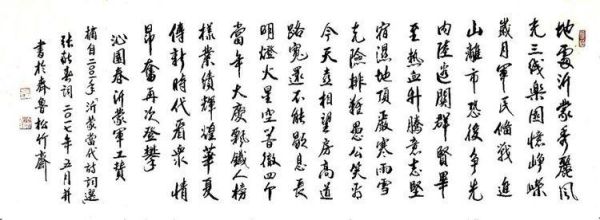 地處沂蒙秀麗風
光三线樂園憶崢嶸
歲月軍民備戰進
山離市恐後争先
内陸边關群賢畢
至热血升騰意志堅
宿濕地頂嚴寒雨雪
克險排難愚公笑前
今天直相望房高道
路寬遠不能歇息長
明燈火星空普徹四
當年大慶飄鐵人榜
樣業績輝煌華夏
傳新時代看衆情
昂奮再次登攀
沁園春沂蒙軍工贊
摘自二〇一二年沂蒙當代詩詞選
張壽詞二〇一七年五月并
書於齊魯松竹齋